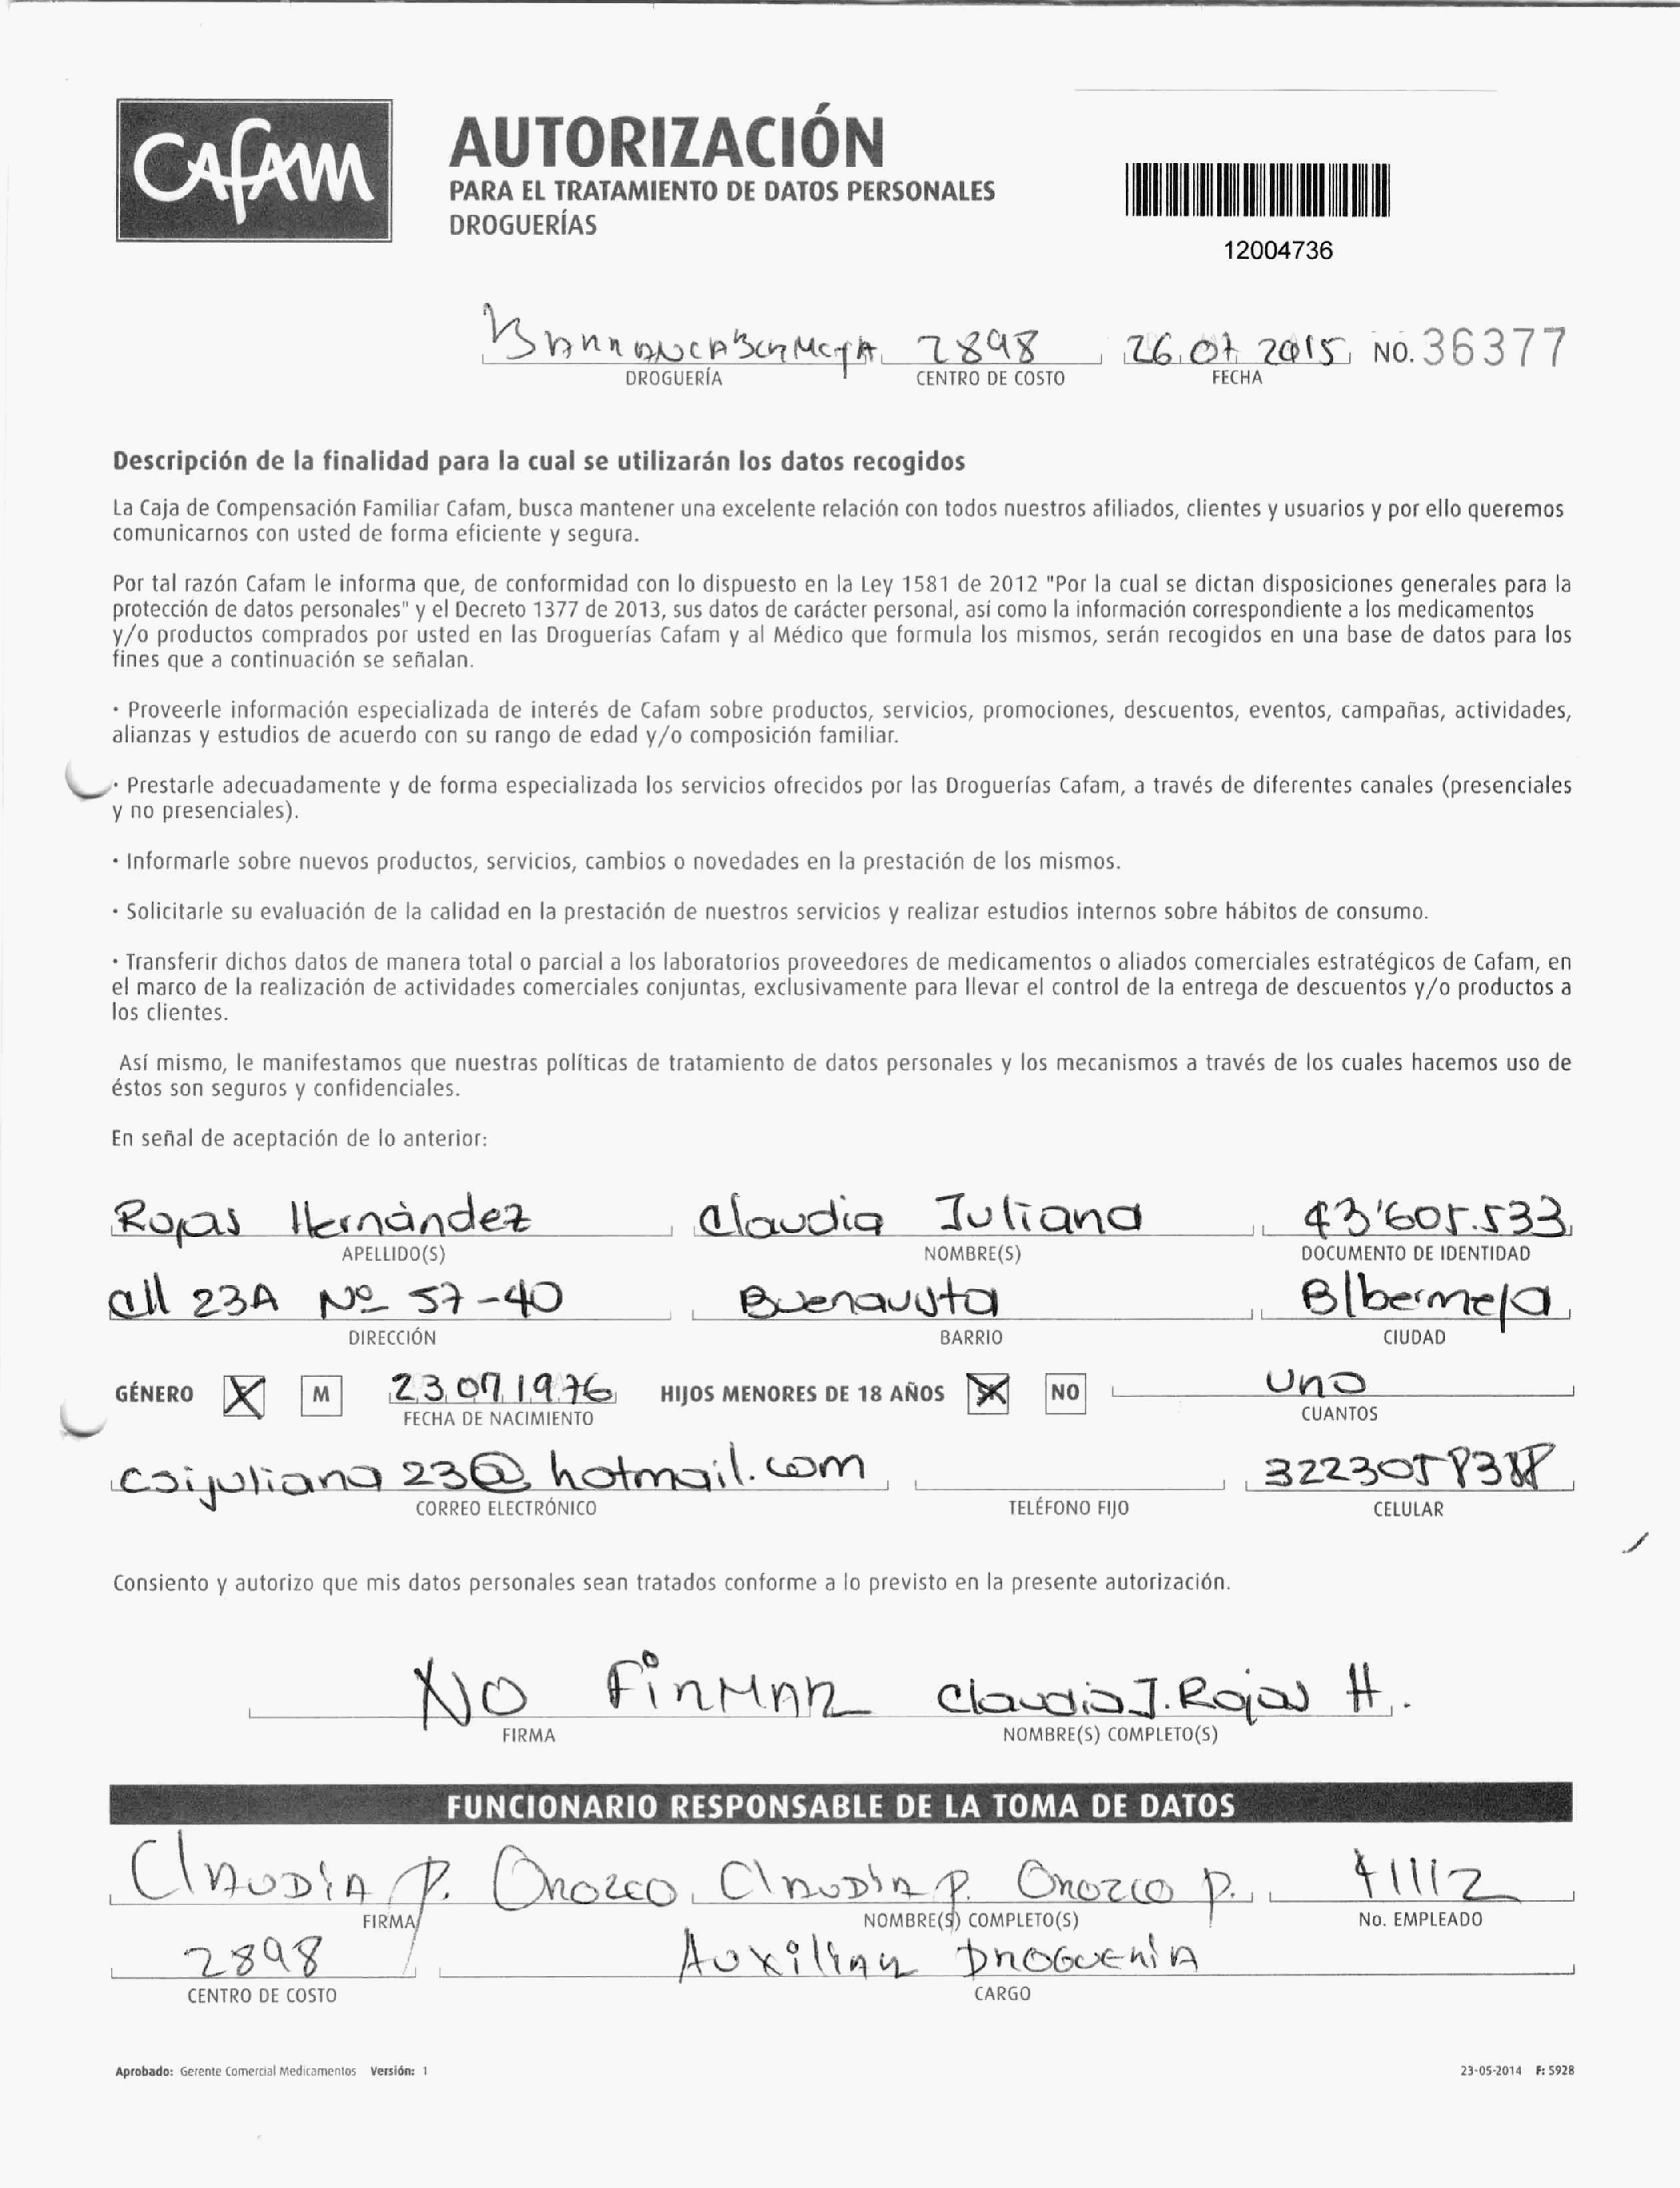 Cafam
AUTORIZACIÓN
PARA EL TRATAMIENTO DE DATOS PERSONALES
DROGUERÍAS
12004736
BARRANCABERMEJA 2898 26 07 2015 NO. 36377
DROGUERÍA CENTRO DE COSTO FECHA
Descripción de la finalidad para la cual se utilizarán los datos recogidos
La Caja de Compensación Familiar Cafam, busca mantener una excelente relación con todos nuestros afiliados, clientes y usuarios y por ello queremos
comunicarnos con usted de forma eficiente y segura.
Por tal razón Cafam le informa que, de conformidad con lo dispuesto en la Ley 1581 de 2012 "Por la cual se dictan disposiciones generales para la
protección de datos personales" y el Decreto 1377 de 2013, sus datos de carácter personal, así como la información correspondiente a los medicamentos
y/o productos comprados por usted en las Droguerías Cafam y al Médico que formula los mismos, serán recogidos en una base de datos para los
fines que a continuación se señalan.
· Proveerle información especializada de interés de Cafam sobre productos, servicios, promociones, descuentos, eventos, campañas, actividades,
alianzas y estudios de acuerdo con su rango de edad y/o composición familiar.
· Prestarle adecuadamente y de forma especializada los servicios ofrecidos por las Droguerías Cafam, a través de diferentes canales (presenciales
y no presenciales).
· Informarle sobre nuevos productos, servicios, cambios o novedades en la prestación de los mismos.
· Solicitarle su evaluación de la calidad en la prestación de nuestros servicios y realizar estudios internos sobre hábitos de consumo.
· Transferir dichos datos de manera total o parcial a los laboratorios proveedores de medicamentos o aliados comerciales estratégicos de Cafam, en
el marco de la realización de actividades comerciales conjuntas, exclusivamente para llevar el control de la entrega de descuentos y/o productos a
los clientes.
Así mismo, le manifestamos que nuestras políticas de tratamiento de datos personales y los mecanismos a través de los cuales hacemos uso de
éstos son seguros y confidenciales.
En señal de aceptación de lo anterior:
Rojas Hernández Claudia Juliana 43'605.533
APELLIDO(S) NOMBRE(S) DOCUMENTO DE IDENTIDAD
Cll 23A Nº 57-40 Buenavista B/bermeja
DIRECCIÓN BARRIO CIUDAD
GÉNERO X M 23 07 1976 HIJOS MENORES DE 18 AÑOS X NO uno
FECHA DE NACIMIENTO CUANTOS
csijuliana23@hotmail.com
CORREO ELECTRÓNICO TELÉFONO FIJO CELULAR
Consiento y autorizo que mis datos personales sean tratados conforme a lo previsto en la presente autorización.
NO FiRMAR Claudia J. Rojas H.
FIRMA NOMBRE(S) COMPLETO(S)
FUNCIONARIO RESPONSABLE DE LA TOMA DE DATOS
Claudia P. Orozco Claudia P. Orozco P. 41112
FIRMA NOMBRE(S) COMPLETO(S) No. EMPLEADO
2898 Auxiliar Drogueria
CENTRO DE COSTO CARGO
Aprobado: Gerente Comercial Medicamentos Versión: 1 23-05-2014 F: 5928